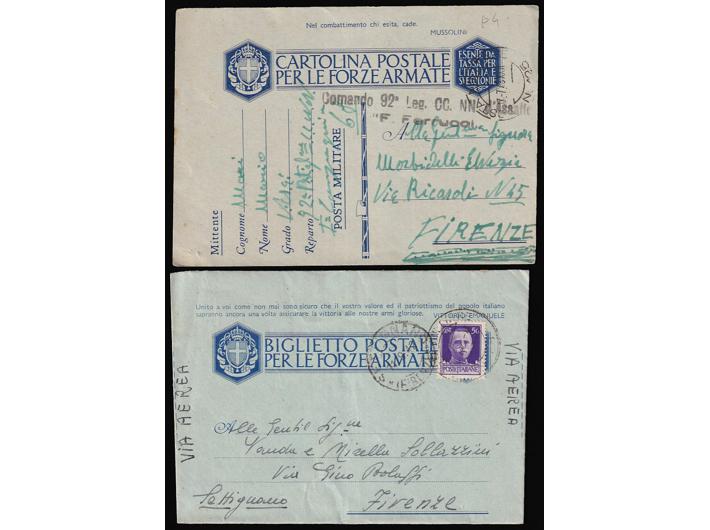 P4.
Nel combattimento chi esita, cade.
MUSSOLINI
CARTOLINA POSTALE
PER LE FORZE ARMATE
ESENTE DA
TASSA PER
L'ITALIA E
SUE COLONIE
Comando 92ª Leg. CC. NN. d'Assalto
"F. Ferrucci
Alla gent.ma Signora
Morbidelli
Via Ricasoli N 45
FIRENZE
Mittente
Cognome
Nome Mario
Grado
Reparto 92ª
POSTA MILITARE
Unito a voi come non mai sono sicuro che il vostro valore ed il patriottismo del popolo italiano
sapranno ancora una volta assicurare la vittoria alle nostre armi gloriose.
VITTORIO EMANUELE
BIGLIETTO POSTALE
PER LE FORZE ARMATE
50
POSTE ITALIANE
VIA AEREA
VIA AEREA
Alle Gentil Sig.ne
Vanda e Mirella Sollazzini
Via Gino
Settignano
Firenze